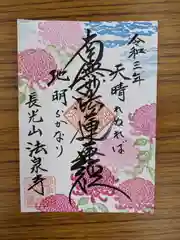 令和三年
天晴れぬれば
南無妙法蓮華経
地明らかなり
長光山 法泉寺